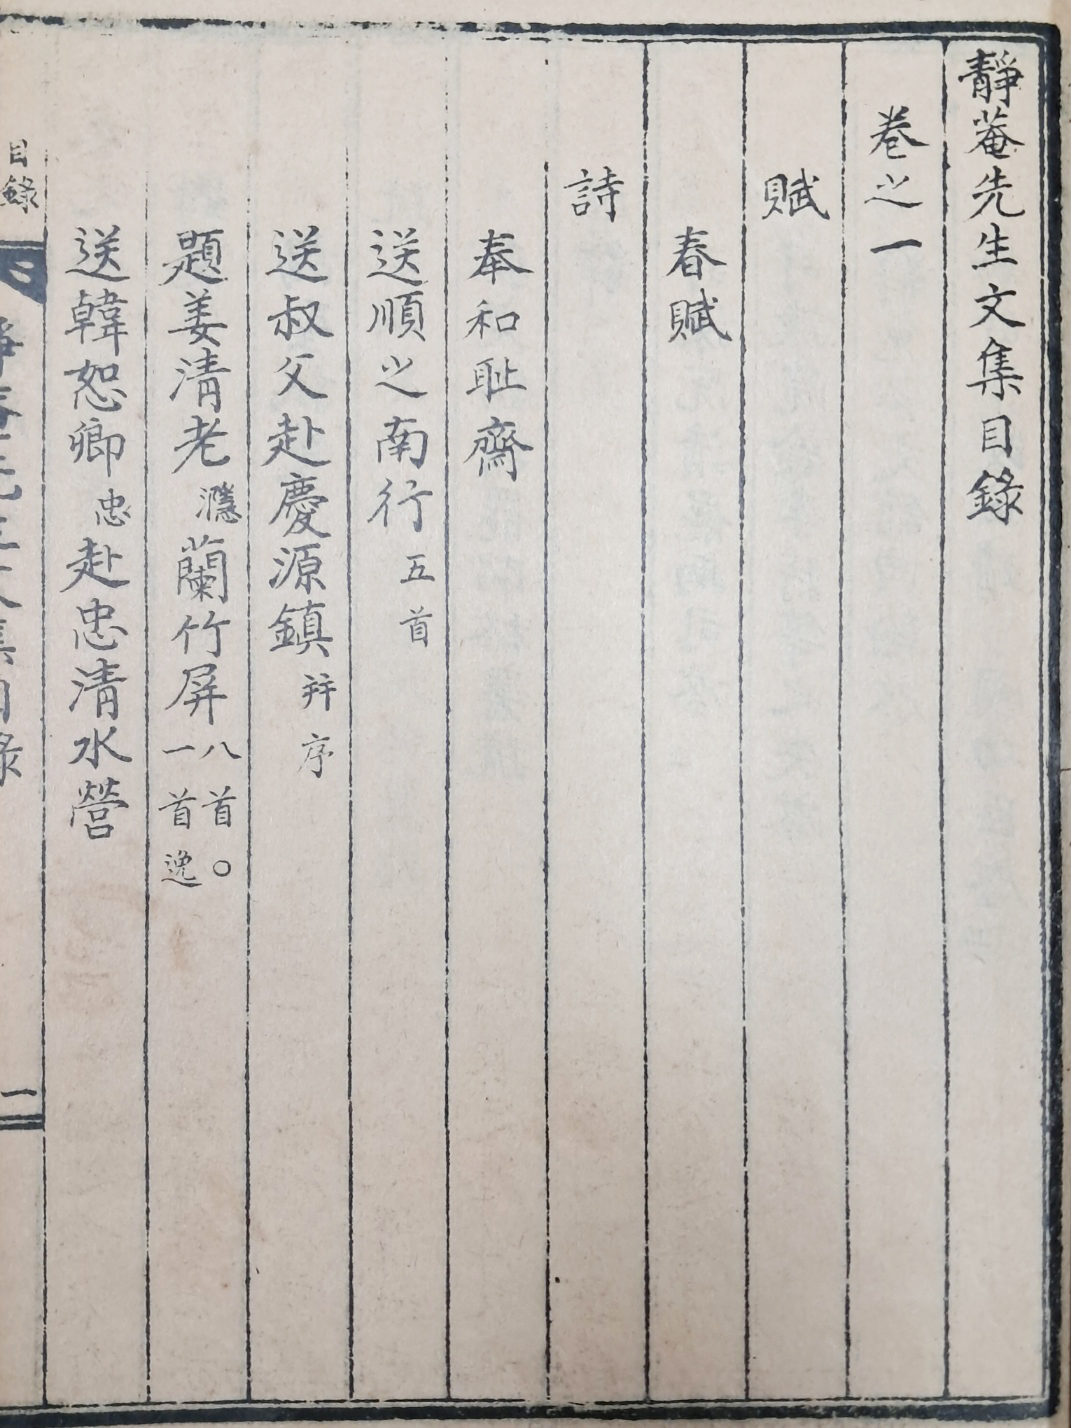 靜菴先生文集目錄
卷之一
賦
春賦
詩
奉和耻齋
送順之南行五首
送叔父赴慶源鎮并序
題姜清老濦蘭竹屏八首〇一首逸
送韓恕卿忠赴忠清水營
目錄
一